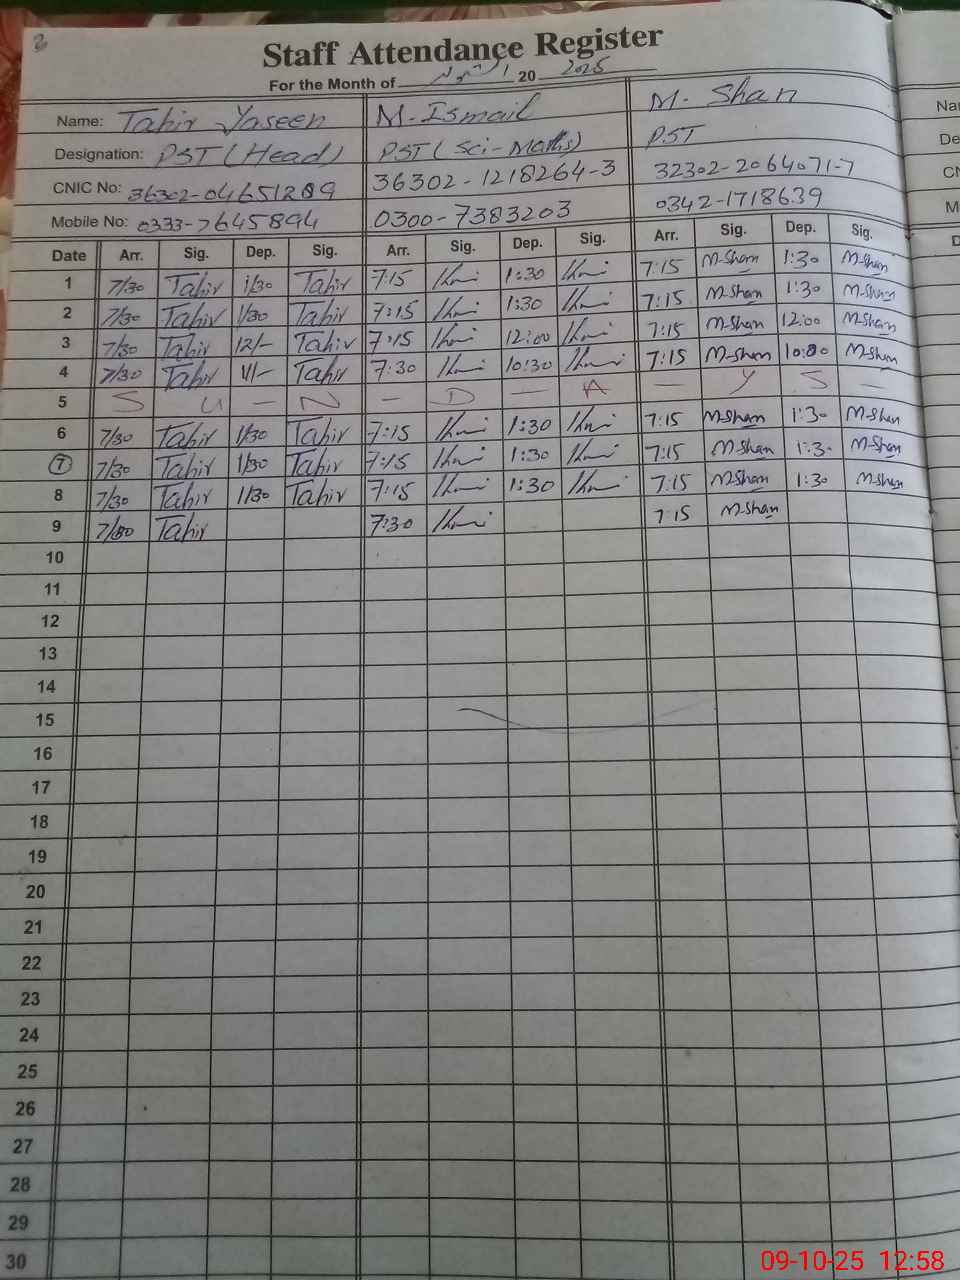 Staff Attendance Register
For the Month of اکتوبر 20 2025
Name: Tahir Yaseen M. Ismail M. Shan
Designation: PST (Head) PST (Sci-Maths) PST
CNIC No: 36302-1218264-3 32302-2064071-7
Mobile No: 0333-7645894 0300-7383203 0342-1718639
Date Arr. Sig. Dep. Sig. Arr. Sig. Dep. Sig. Arr. Sig. Dep. Sig.
1 7/30 Tahir 1/30 Tahir 7:15 1:30 7:15 M-Shan 1:30 M-Shan
2 7/30 Tahir 1/30 Tahir 7:15 1:30 7:15 M-Shan 1:30 M-Shan
3 7/30 Tahir 12/- Tahir 7:15 12:00 7:15 M-Shan 12:00 M-Shan
4 7/30 Tahir 11/- Tahir 7:30 10:30 7:15 M-Shan 10:00 M-Shan
5 S U - N - D - A - Y S -
6 7/30 Tahir 1/30 Tahir 7:15 1:30 7:15 M-Shan 1:30 M-Shan
7 7/30 Tahir 1/30 Tahir 7:15 1:30 7:15 M-Shan 1:30 M-Shan
8 7/30 Tahir 1/30 Tahir 7:15 1:30 7:15 M-Shan 1:30 M-Shan
9 7/30 Tahir 7:30 7:15 M-Shan
10
11
12
13
14
15
16
17
18
19
20
21
22
23
24
25
26
27
28
29
30
09-10-25 12:58